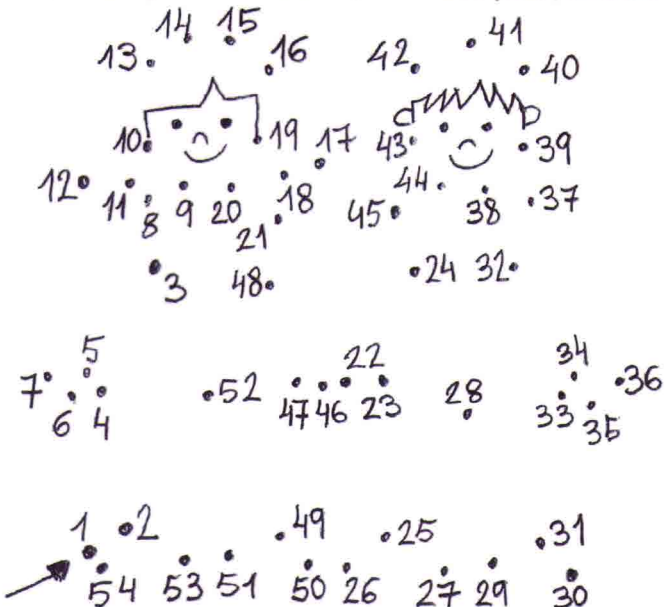 14 15 41
13 16 42 40
10 19 17 43 39
12 11 8 9 20 18 44 45 38 37
21
3 48 24 32
5 22 34
7 52 28 36
6 4 47 46 23 33 35
1 2 49 25 31
54 53 51 50 26 27 29 30